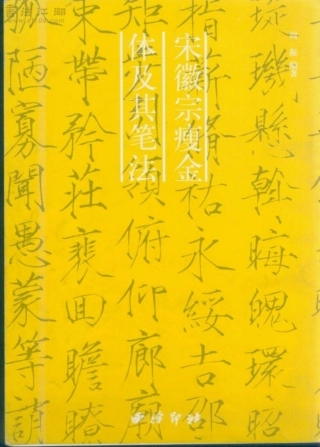 宋徽宗瘦金
体及其笔法
璣懸斡晦魄環照
指薪脩祜永綏吉劭
矩步引領俯仰廊廟
束帶矜莊裴回瞻眺
陋寡聞愚蒙等誚
西泠印社